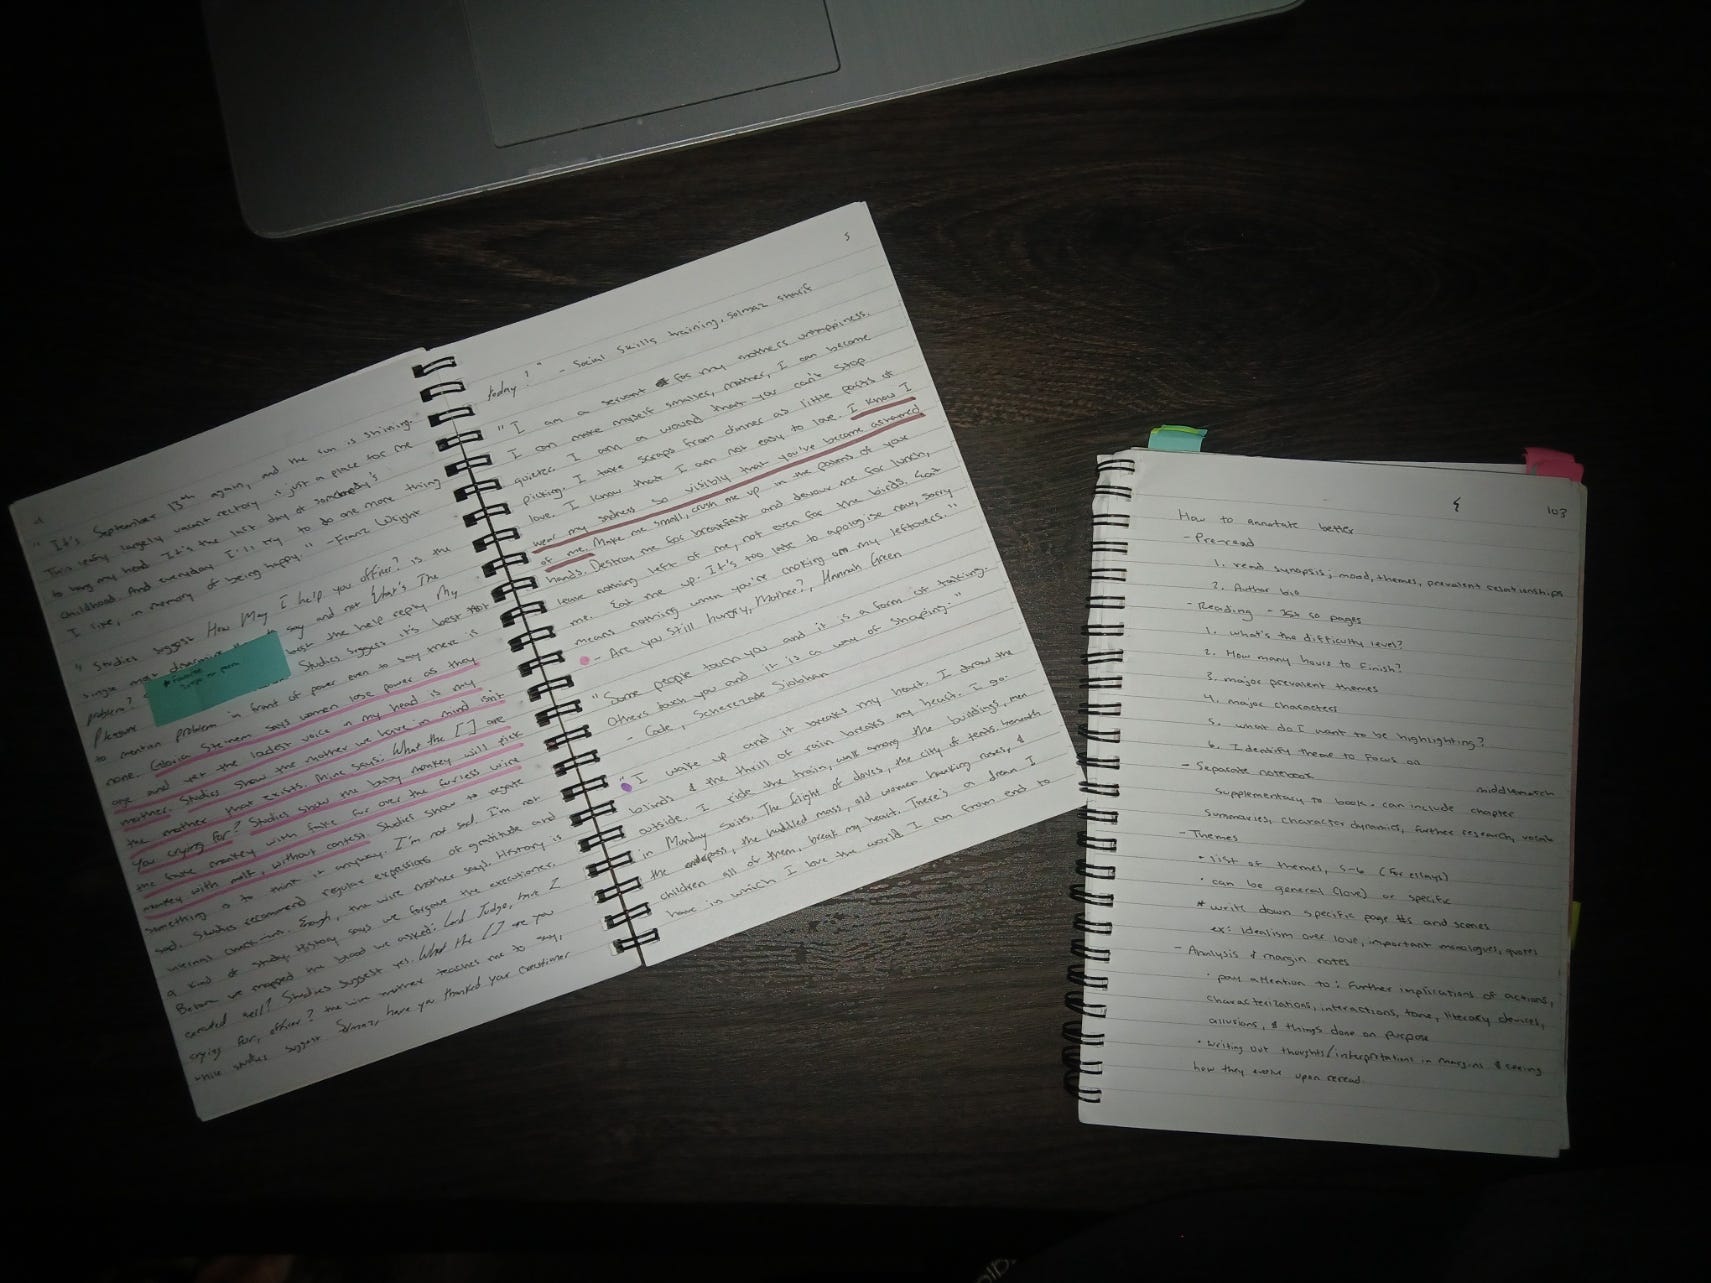 4
"It's September 13th again, and the sun is shining.
This leafy largely vacant rectory is just a place for me
to hang my head. It's the last day of somebody's
childhood. And everyday I'll try to do one more thing
I like, in memory of being happy." - Franz Wright
"Studies suggest How May I help you officer? is the
single most disarming to say and not What's The
problem? best the help reply My
Pleasure Studies suggest it's best not
to mention problem in front of power even to say there is
none. Gloria Steinem says women lose power as they
age and yet the loudest voice in my head is my
mother. Studies show the mother we have in mind isn't
the mother that exists. Mine says: What the [] are
you crying for? Studies show the baby monkey will pick
the fake monkey with fake fur over the furless wire
monkey with milk, without contest. Studies show to negate
something is to think it anyway. I'm not sad. I'm not
sad. Studies recommend regular expressions of gratitude and
internal check-ins. Enough, the wire mother says. History is
a kind of study. History says we forgave the executioner.
Before we mopped the blood we asked: Lord Judge, have I
executed well? Studies suggest yes. What the [] are you
crying for, officer? the wire mother teaches me to say,
while studies suggest Solmaz, have you thanked your executioner
5
today?" - Social Skills training, Solmaz Sharif
"I am a servant for my mothers unhappiness.
I can make myself smaller, mother, I can become
quieter. I am a wound that you can't stop
picking. I take scraps from dinner as little parts of
love. I know that I am not easy to love. I know I
wear my sadness so visibly that you've become ashamed
of me. Make me small, crush me up in the palms of your
hands. Destroy me for breakfast and devour me for lunch,
leave nothing left of me, not even for the birds. Eat
me. Eat me up. It's too late to apologise now, sorry
means nothing when you're choking on my leftovers."
- Are you still hungry, Mother?, Hannah Green
"Some people touch you and it is a form of taking.
Others touch you and it is a way of shaping."
- Code, Scherezade Siobhan
"I wake up and it breaks my heart. I draw the
blinds & the thrill of rain breaks my heart. I go
outside. I ride the train, walk among the buildings, men
in Monday suits. The flight of doves, the city of tents beneath
the underpass, the huddled mass, old women hawking roses, &
children all of them, break my heart. There's a dream I
have in which I love the world. I run from end to
103
How to annotate better
- Pre-read
1. read synopsis; mood, themes, prevalent relationships
2. Author bio
- Reading - 1st 50 pages
1. what's the difficulty level?
2. How many hours to finish?
3. major prevalent themes
4. major characters
5. what do I want to be highlighting?
6. Identify theme to focus on
- Separate notebook
middlemarch
supplementary to book. can include chapter
summaries, character dynamics, further research, vocab
- Themes
• list of themes, 5-6 (for essays)
• can be general (love) or specific
* write down specific page #s and scenes
ex: Idealism over love, important monologues, quotes
- Analysis & margin notes
• pay attention to: further implications of actions,
characterizations, interactions, tone, literary devices,
allusions, & things done on purpose
• writing out thoughts/interpretations in margins & seeing
how they evolve upon reread.